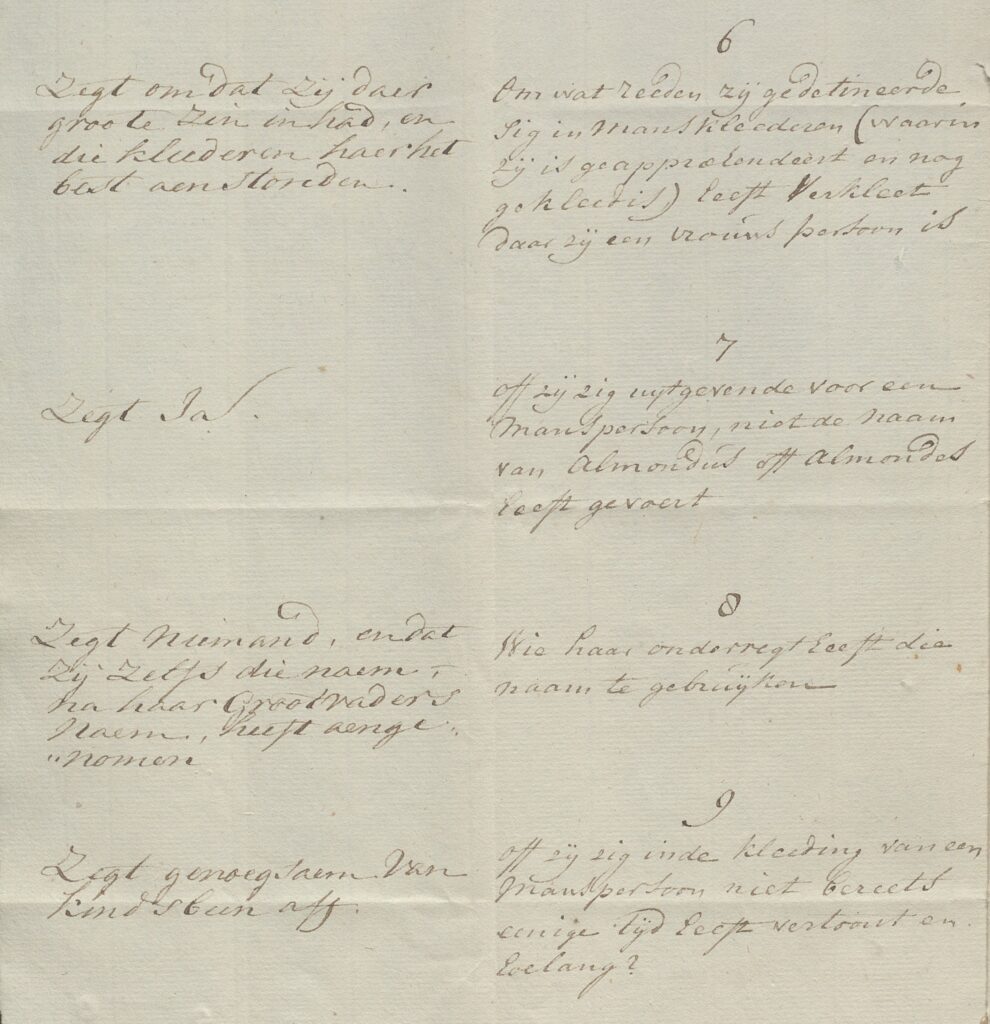 6
Om wat reeden zij gedetineerde
sig in Manskleederen (waarin
zij is geapprehendeert en nog
gekleed is) heeft Verkleet
daar zij een vrouws persoon is
Zegt om dat zij daer
groote zin in had, en
die kleederen haer het
best aenstonden.
7
off zij zig uytgevende voor een
Manspersoon, niet de naam
van Almondus off Almondes
heeft gevoert
Zegt Ja.
8
Wie haar onderregt heeft die
naam te gebruijken
Zegt Niemand, en dat
zij zelfs die naem,
na haar Grootvaders
Naem, heeft aenge„
„nomen
9
off zij zig inde kleeding van een
Manspersoon niet bereets
eenige tyd heeft vertoont en
hoelang?
Zegt genoegsaem van
kindsbeen aff.